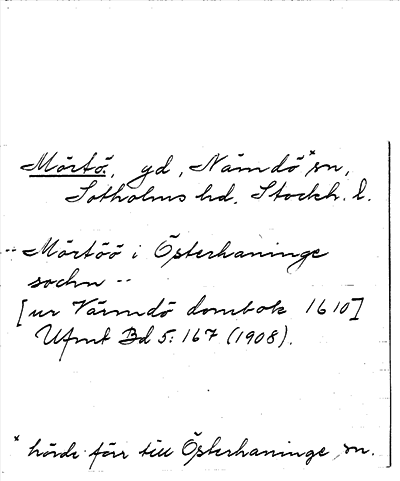 Mörtö, gd, Nämdö* sn,
Sotholms hd. Stockh. l.
-- Mörtöö i Österhaninge
sochn --
[ur Värmdö dombok 1610]
Ufmt Bd 5: 167 (1908).
* hörde förr till Österhaninge sn.